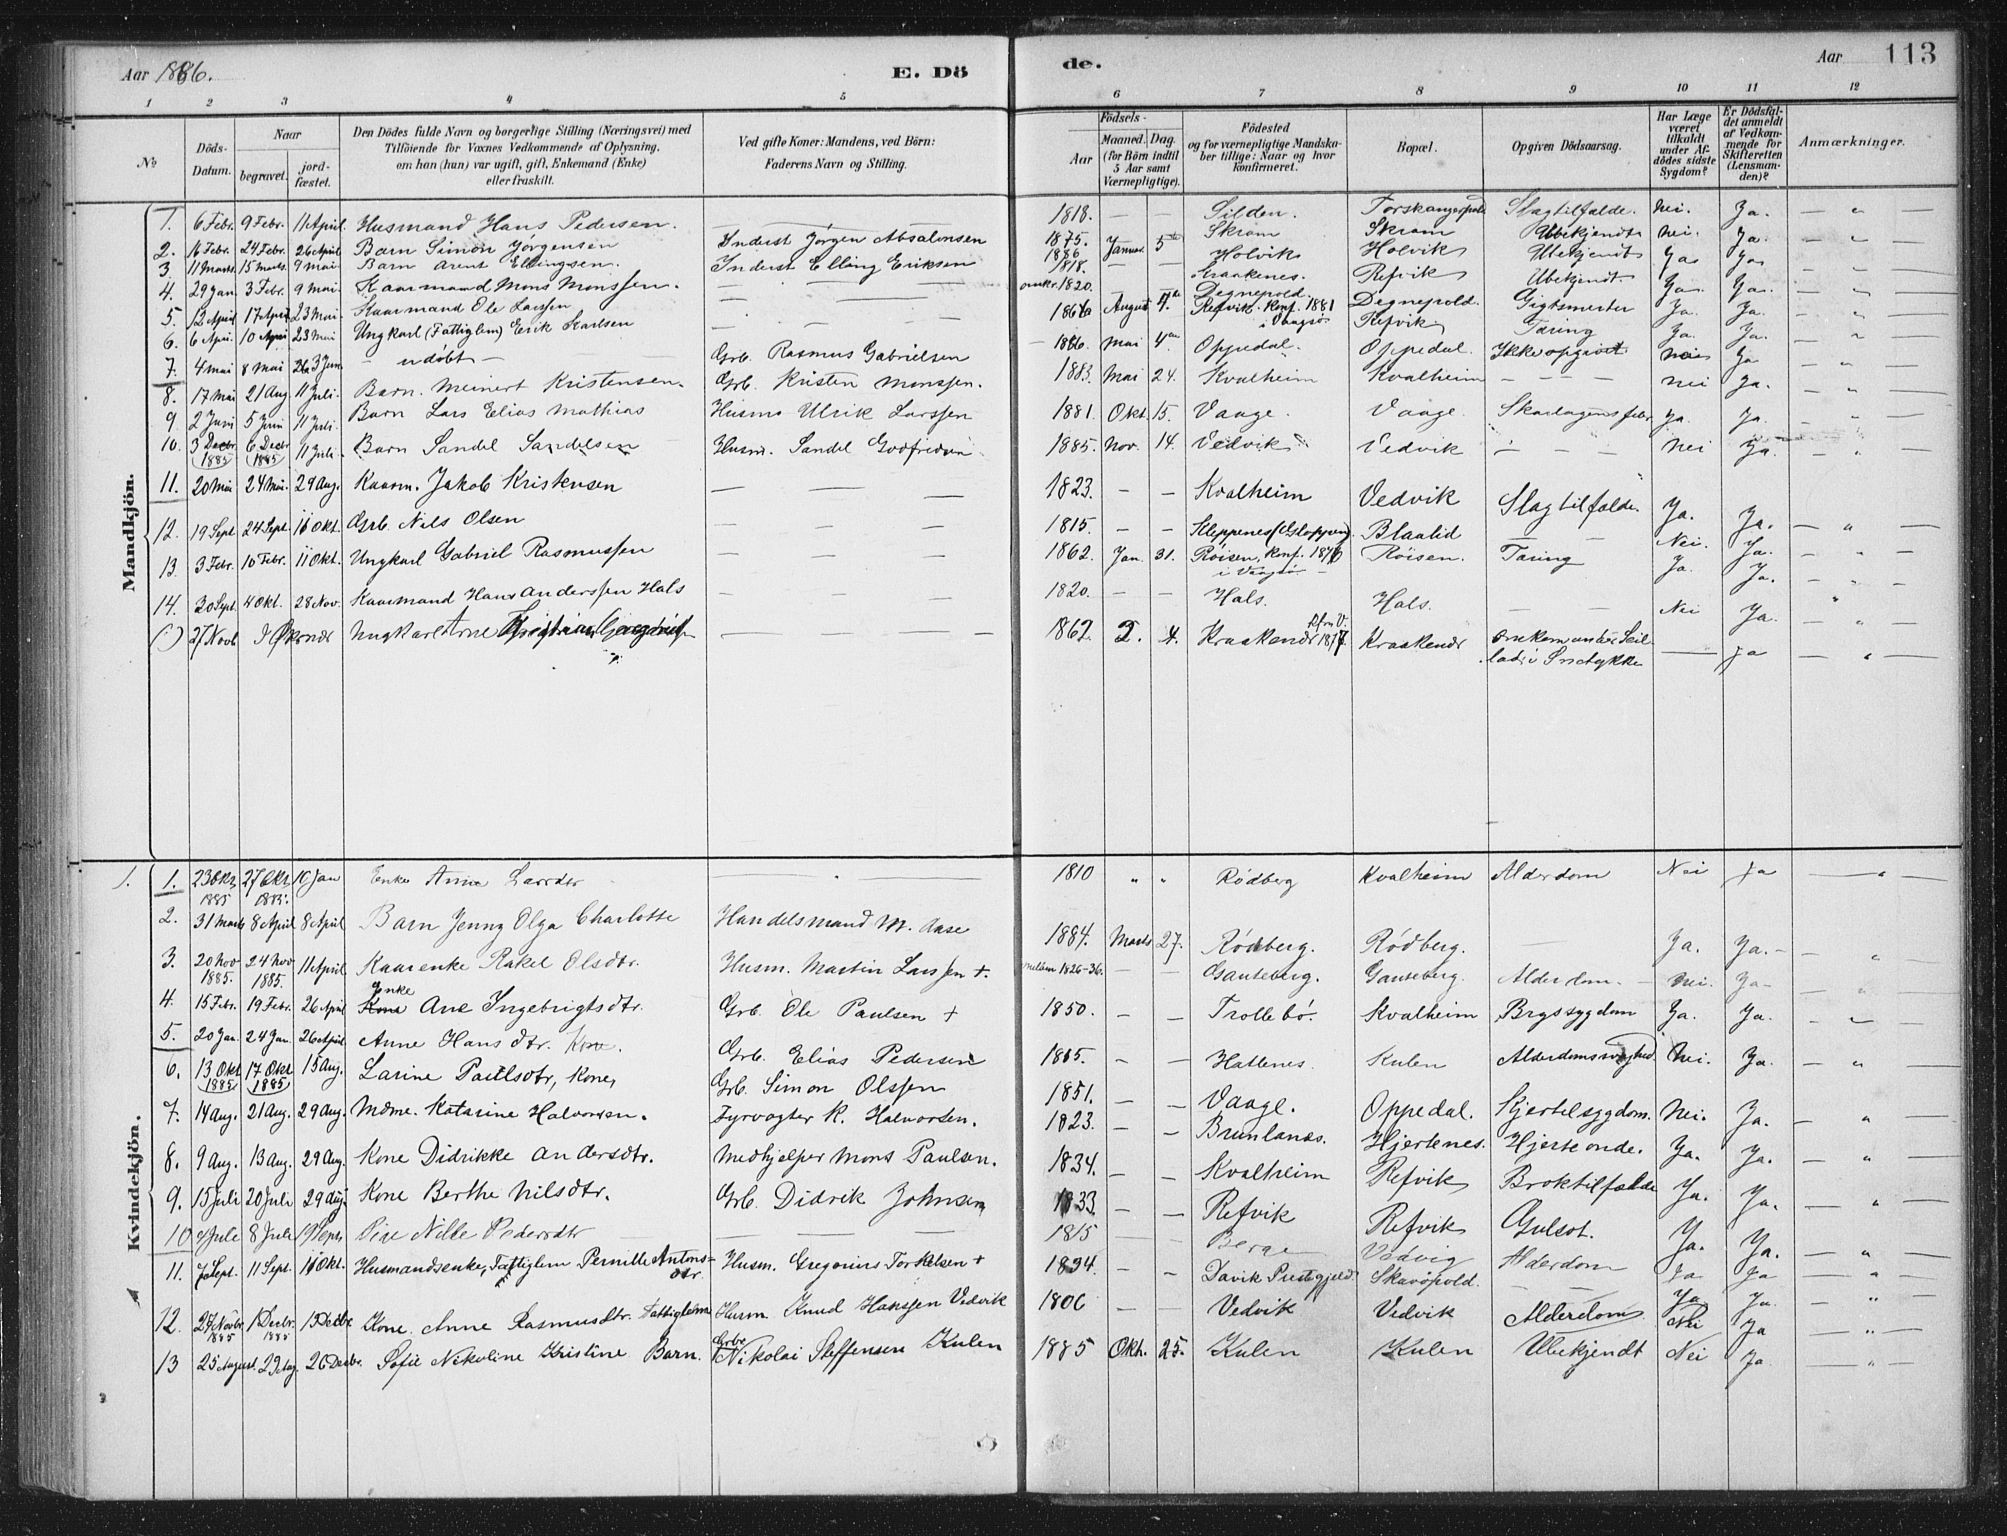 Aar 1886. E. Dö
de. Aar 113
1 2 3 4 5 6 7 8 9 10 11 12
No
Döds-Datum.
Naar
begravet.
jord-fæstet.
Den Dödes fulde Navn og borgerlige Stilling (Næringsvei) med
Tilföiende for Voxnes Vedkommende af Oplysning.
om han (hun) var ugift, gift, Enkemand (Enke)
eller fraskilt.
Ved gifte Koner: Mandens, ved Börn:
Faderens Navn og Stilling.
Födsels-
Aar
Maaned. Dag.
(for Börn indtil
5 Aar samt
Værnepligtige).
Födested
og for værnepligtige Mandska-
ber tillige: Naar og hvor
konfirmeret.
Bopæl.
Opgiven Dödsaarsag.
Har Læge
været
tilkaldt
under Af-
dödes sidste
Sygdom?
Er Dödsfal-
det anmeldt
af Vedkom-
mende for
Skifteretten
(Lensman-
den)?
Anmærkninger.
Mandkjön.
1. 6 Febr. 9 Febr. 11 April Husmand Hans Pedersen. — 1818. — — Silden. Slagtilfælde. Nei. Ja. — " —
2. 16 Febr. 24 Febr. 26 April Barn Simon Jörgensen Inderst Jörgen Absalonsen 1875. Skram Skram Ubekjendt Nei. Ja. — " —
3. 11 Marts 15 Marts 9 Mai Barn Arent Ellingsen. Inderst Elling Eriksen 1886 Januar 5te Holvik Holvik Ubekjendt Ja Ja — " —
4. 29 Jan. 3 Febr. 9 Mai. Kaarmand Mons Monssen. — 1818. — — Kraakenes. Refvik Ubekjendt. Ja. Ja. — " —
5. 12 April 17 April 23 Mai Kaarmand Ole Larssen — omkr. 1820. Degnepold Degnepold. Gigtsmerter Ja. Ja. — " —
6. 6 April. 10 April 23 Mai Ungkarl (Fattiglem) Erik Karlsen — August Refvik. Konf. 1881 i Vaagsö Refvik Tæring Ja. Ja. — " —
7. 4 Mai 8 Mai — udöbt — Grb. Rasmus Gabrielsen 1886. Mai 4de Oppedal. Oppedal. Ikke opgivet Nei Ja — " —
8. 17 Mai 21 Aug 11 Juli. Barn. Meinert Kristensen. Grb. Kristen Monssen. 1883. Mai 24. Kvalheim Kvalheim — — — Nei Ja. — " —
9. 2 Juni 5 Juni 11 Juli. Barn Lars Elias Mathias Husm. Ulrik Larssen 1881. Okt. 15. Vaage. Vaage. Skarlagensfeber Ja. Ja. — " —
10. 3 Decbr 1885 6 Decbr 1885 11 Juli. Barn Sandel Sandelsen Husm. Sandel Godfredsen. 1885. Nov. 14. Vedvik Vedvik — — — Nei Ja. — " —
11. 20 Mai 24 Mai. 29 Aug. Kaarm. Jakob Kristensen — — — 1823. — — Kvalheim Vedvik Slagtilfælde. Ja. Ja. — " —
12. 19 Sept. 24 Sept. 16 Okt. Grb. Nils Olsen — — — 1815. — — Kleppenes (Gloppen) Blaalid Nei. Ja. — " —
13. 3 Febr. 10 Febr. 11 Okt. Ungkarl Gabriel Rasmussen — — — 1862. Jan. 31. Röisen, Konf. 1876 i Vaagsö — Röisen. Tæring Ja. Ja. — " —
14. 30 Sept. 4 Okt. 28 Nov. Kaarmand Hans Anderssen Hals — — — 1820. — — Hals. Hals. — — Nei Ja. — " —
27 Novb Ungkarl Arne 1862. 2. 4. Kraakenæs Kraakenæs Omkom under Seil-
lads i Snetykke — Ja — " —
Kvindekjön.
1. 1. 23 Okt. 1885 27 Okt. 1885. 10 Jan Enke Anne Larsdtr — " — 1810 " " Rödberg Kvalheim Alderdom Nei Ja — " —
2. 31 Marts 8 April 8 April Barn Jenny Olga Charlotte Handelsmand M. Aase 1884. Marts 27. Rödberg. Rödberg. — Ja. Ja. — " —
3. 20 Nov 1885. 24 Nov 1885. 11 April Kaarenke Rakel Olsdtr. Husm. Martin Larssen + mellem 1826-36. — — Gauteberg. Gauteberg. Alderdom. — Nei. Ja — " —
4. 15 Febr. 19 Febr. 26 April Enke Kone Ane Ingebrigtsdtr. Grb. Ole Paulsen + 1850. — — Trollebö. Kvalheim Brystsygdom Ja. Ja. — " —
5. 20 Jan. 24 Jan. 26 April Anne Hansdtr. Kone. Grb. Elias Pedersen — — Hattenes. Kulen Alderdomssvaghed Nei. Ja. — " —
6. 13 Okt 1885 17 Okt 1885 15 Aug. Larine Paulsdtr, Kone, Grb. Simon Olssen 1851. — — Vaage. Oppedal. Kjertelsygdom. Nei. Ja. — " —
7. 14 Aug. 21 Aug. 29 Aug. Mdme. Katarine Halvorsen. Fyrvogter K. Halvorsen. 1823. — — Brunlanæs. Hjertenes. Hjerteonde. Ja. Ja. — " —
8. 9 Aug. 13 Aug. 29 Aug. Kone Didrikke Andersdtr. Medhjelper Mons Paulsen. 1834. — — Kvalheim Refvik Broktilfælde Ja. Ja. — " —
9. 15 Juli 20 Juli 29 Aug. Kone Berthe Nilsdtr. Grb. Didrik Johnsen 1833. — — Refvik Refvik Gulsot. Ja. Ja. — " —
10 Juli 8 Juli 19 Sept. Pige Nille Pedersdtr — 1815 Berge Vedvig Alderdom Ja Ja — " —
11. 7 Sept. 11 Sept. 16 Okt. Husmandsenke, Fattiglem Pernille Antons-
dtr. Husm. Gregorius Torkelsen + Davik Prestegjeld. Skavöpold. — Ja Ja. — " —
12. 27 Novbr. 1885 1 Decbr. 1885 Decbr Kone Anne Rasmusdtr. Fattiglem Husm. Knud Hanssen Vedvik 1806 — — Vedvik Vedvik Alderdom Nei Ja — " —
13 25 August. 29 Aug. 26 Decbr. Sofie Nikoline Kristine Barn. Grbr Nikolai Steffensen Kulen 1885 Okt. 25. Kulen Kulen Ubekjendt Nei Ja. — " —